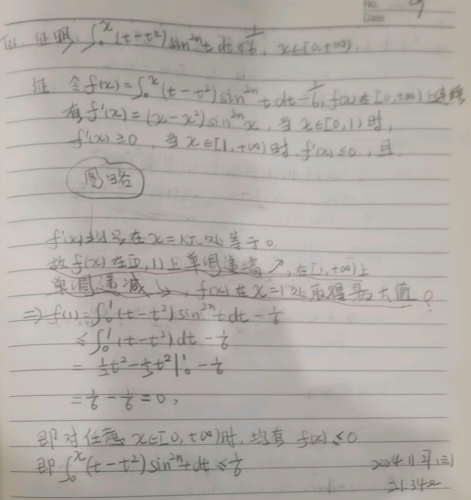 No.
Date
证明: ∫₀ˣ(t-t²)sin²ⁿt dt ≤ 1/6, x∈[0,+∞).
证 令f(x)=∫₀ˣ(t-t²)sin²ⁿt dt-1/6, f(x)在[0,+∞)上连续
有f'(x)=(x-x²)sin²ⁿx, 当x∈[0,1)时,
f'(x)≥0, 当x∈[1,+∞)时, f'(x)≤0, 且
图略
f'(x) 在x=kπ处等于0
故f(x)在[0,1)上单调递增↗, 在[1,+∞)上
单调递减↘, f(x)在x=1处取得最大值
⇒f(1)=∫₀¹(t-t²)sin²ⁿt dt-1/6
≤∫₀¹(t-t²)dt-1/6
=1/2t²-1/3t²|₀¹-1/6
=1/6-1/6=0,
即对任意x∈[0,+∞)时, 均有f(x)≤0
即∫₀ˣ(t-t²)sin²ⁿt dt≤1/6
21:34